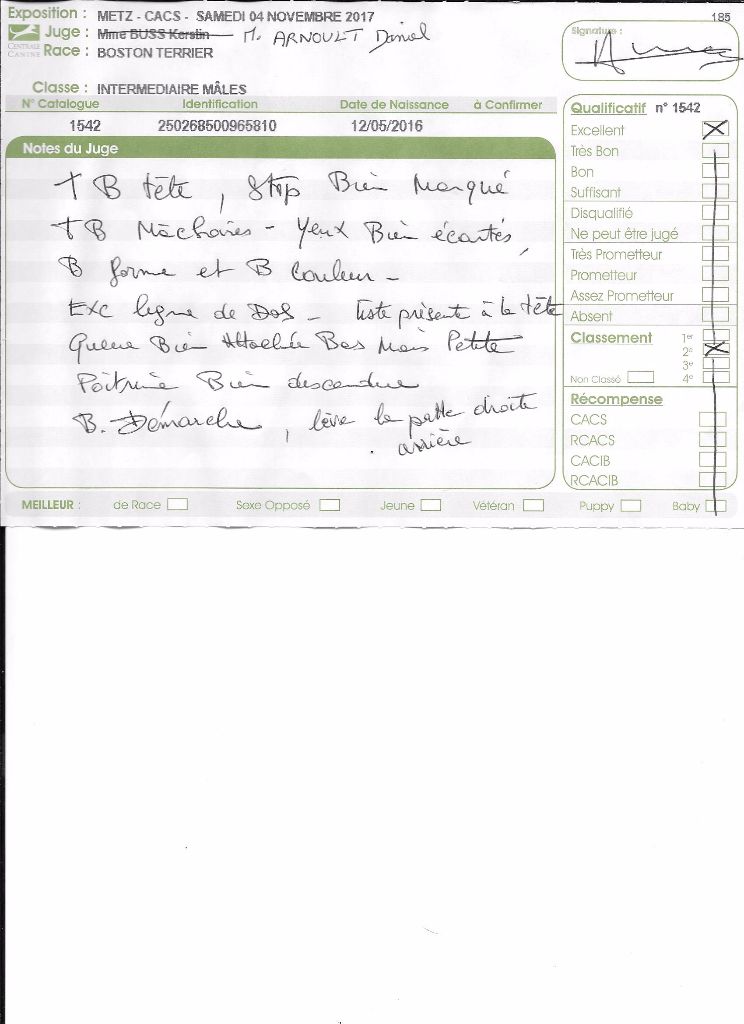 185
Exposition : METZ - CACS - SAMEDI 04 NOVEMBRE 2017
Juge : Mme BUSS Kerstin M. ARNOULT Daniel
CENTRALE CANINE
Race : BOSTON TERRIER
Signature :
Classe : INTERMEDIAIRE MÂLES
N° Catalogue Identification Date de Naissance à Confirmer
1542 250268500965810 12/05/2016
Notes du Juge
T B tête, Stop Bien Marqué
T B Mâchoires - Yeux Bien écartés,
B forme et B Couleur -
Exc ligne de Dos - liste présente à la tête
Queue Bien Attachée Bas Mais Petite
Poitrine Bien descendue
B. Démarche, lève la patte droite
arrière
Qualificatif n° 1542
Excellent
Très Bon
Bon
Suffisant
Disqualifié
Ne peut être jugé
Très Prometteur
Prometteur
Assez Prometteur
Absent
Classement 1er
2e
3e
Non Classé 4e
Récompense
CACS
RCACS
CACIB
RCACIB
MEILLEUR : de Race Sexe Opposé Jeune Vétéran Puppy Baby